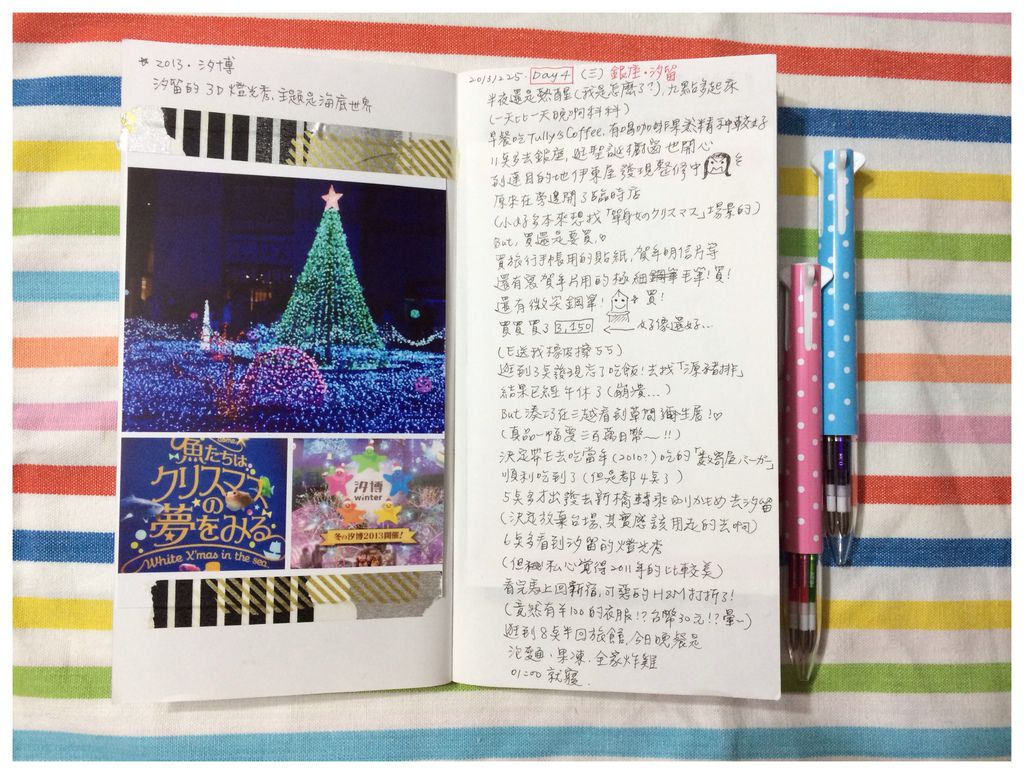 * 2013・汐博
汐留的 3D 燈光秀,主題是海底世界
魚たちは
クリスマス
の
夢をみる
White X'mas in the sea
汐博
winter
冬の汐博2013開催!
20131225. Day 4 (三) 銀座・汐留
半夜還是熱醒(我是怎麼了?),九點多起床
(一天比一天晚啊科科)
早餐吃Tully's Coffee.有喝咖啡果然精神較好
11點多去銀座,逛聖誕櫥窗也開心
到達目的地伊東屋發現整修中
原來在旁邊開了臨時店
(小好多本來想找「單身女のクリスマス」場景的)
But,買還是要買,♡
買旅行手帳用的貼紙,賀年明信片等
還有寫賀年片用的極細毛筆!買!
還有微笑鋼筆! 買!
買買買了 8,150 ← 好像還好…
(E送我橡皮擦55)
逛到3點發現忘了吃飯!去找「源豬排」
結果已經午休了(崩潰…)
But 湊巧在三越看到草間彌生展!♡
(真品一幅要三百萬日幣~!!)
決定帶E去吃當年(2010?)吃的「數寄屋バーガー」
順利吃到了(但是都4點了)
5點多才出發去新橋轉乘ゆりかもめ去汐留
(決定放棄台場,其實應該用走的去啊)
6點多看到汐留的燈光秀
(但私心覺得2011年的比較美)
看完馬上回新宿,可惡的H&M打折了!
(竟然有¥100的衣服!?台幣30元!?暈~)
逛到8點半回旅館,今日晚餐是
泡麵、果凍、全家炸雞
01:00 就寢.